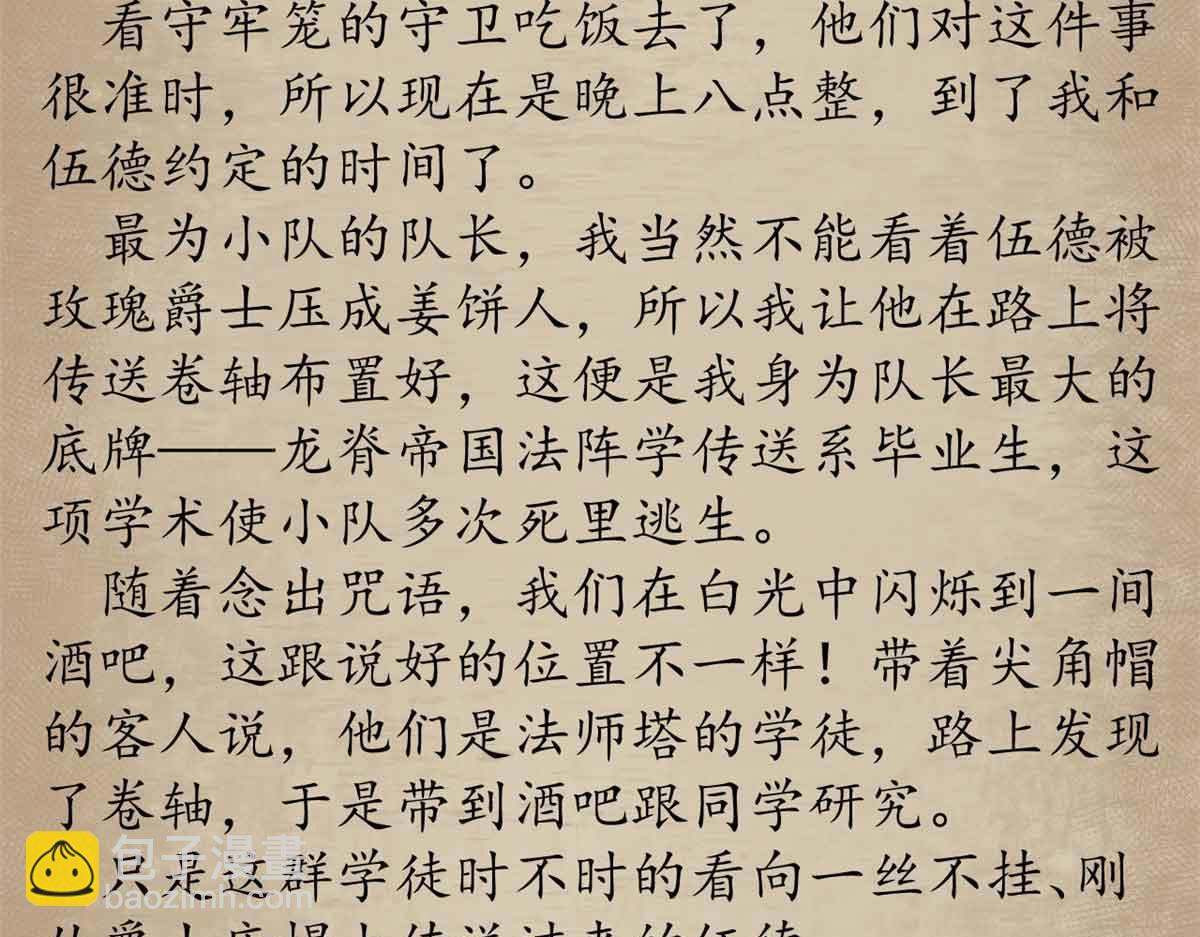 看守牢笼的守卫吃饭去了，他们对这件事
很准时，所以现在是晚上八点整，到了我和
伍德约定的时间了。
最为小队的队长，我当然不能看着伍德被
玫瑰爵士压成姜饼人，所以我让他在路上将
传送卷轴布置好，这便是我身为队长最大的
底牌——龙脊帝国法阵学传送系毕业生，这
项学术使小队多次死里逃生。
随着念出咒语，我们在白光中闪烁到一间
酒吧，这跟说好的位置不一样！带着尖角帽
的客人说，他们是法师塔的学徒，路上发现
了卷轴，于是带到酒吧跟同学研究。
只是这群学徒时不时的看向一丝不挂、刚
包子漫畫
baozimh.com